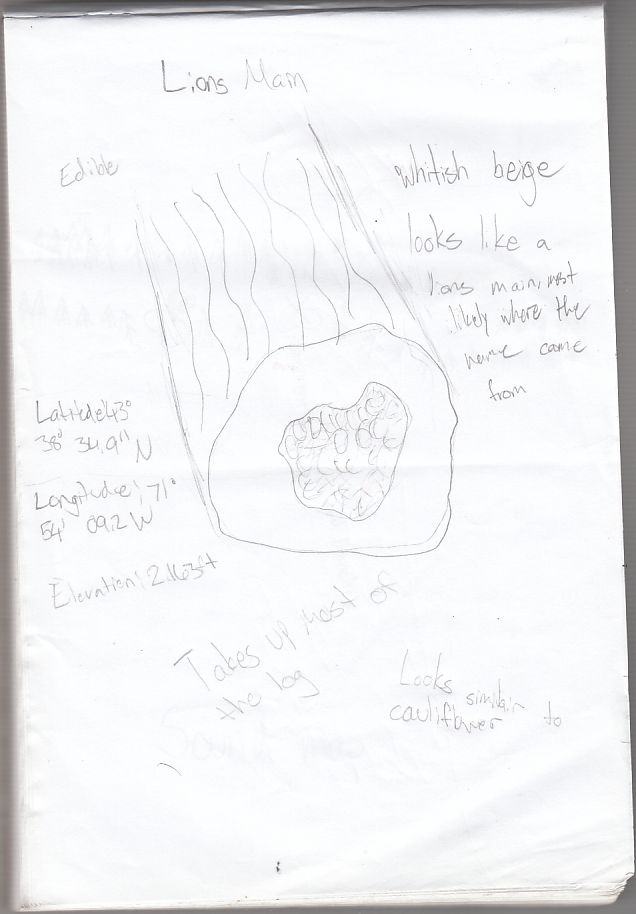 Lions Mam
Edible
whitish beige
looks like a
lions main, most
likely where the
name came
from
Latitude: 43°
38° 34.9" N
Longitude: 71°
54' 09.2 W
Elevation: 2.163ft
Takes up most of
the log
Looks similair
cauliflower to